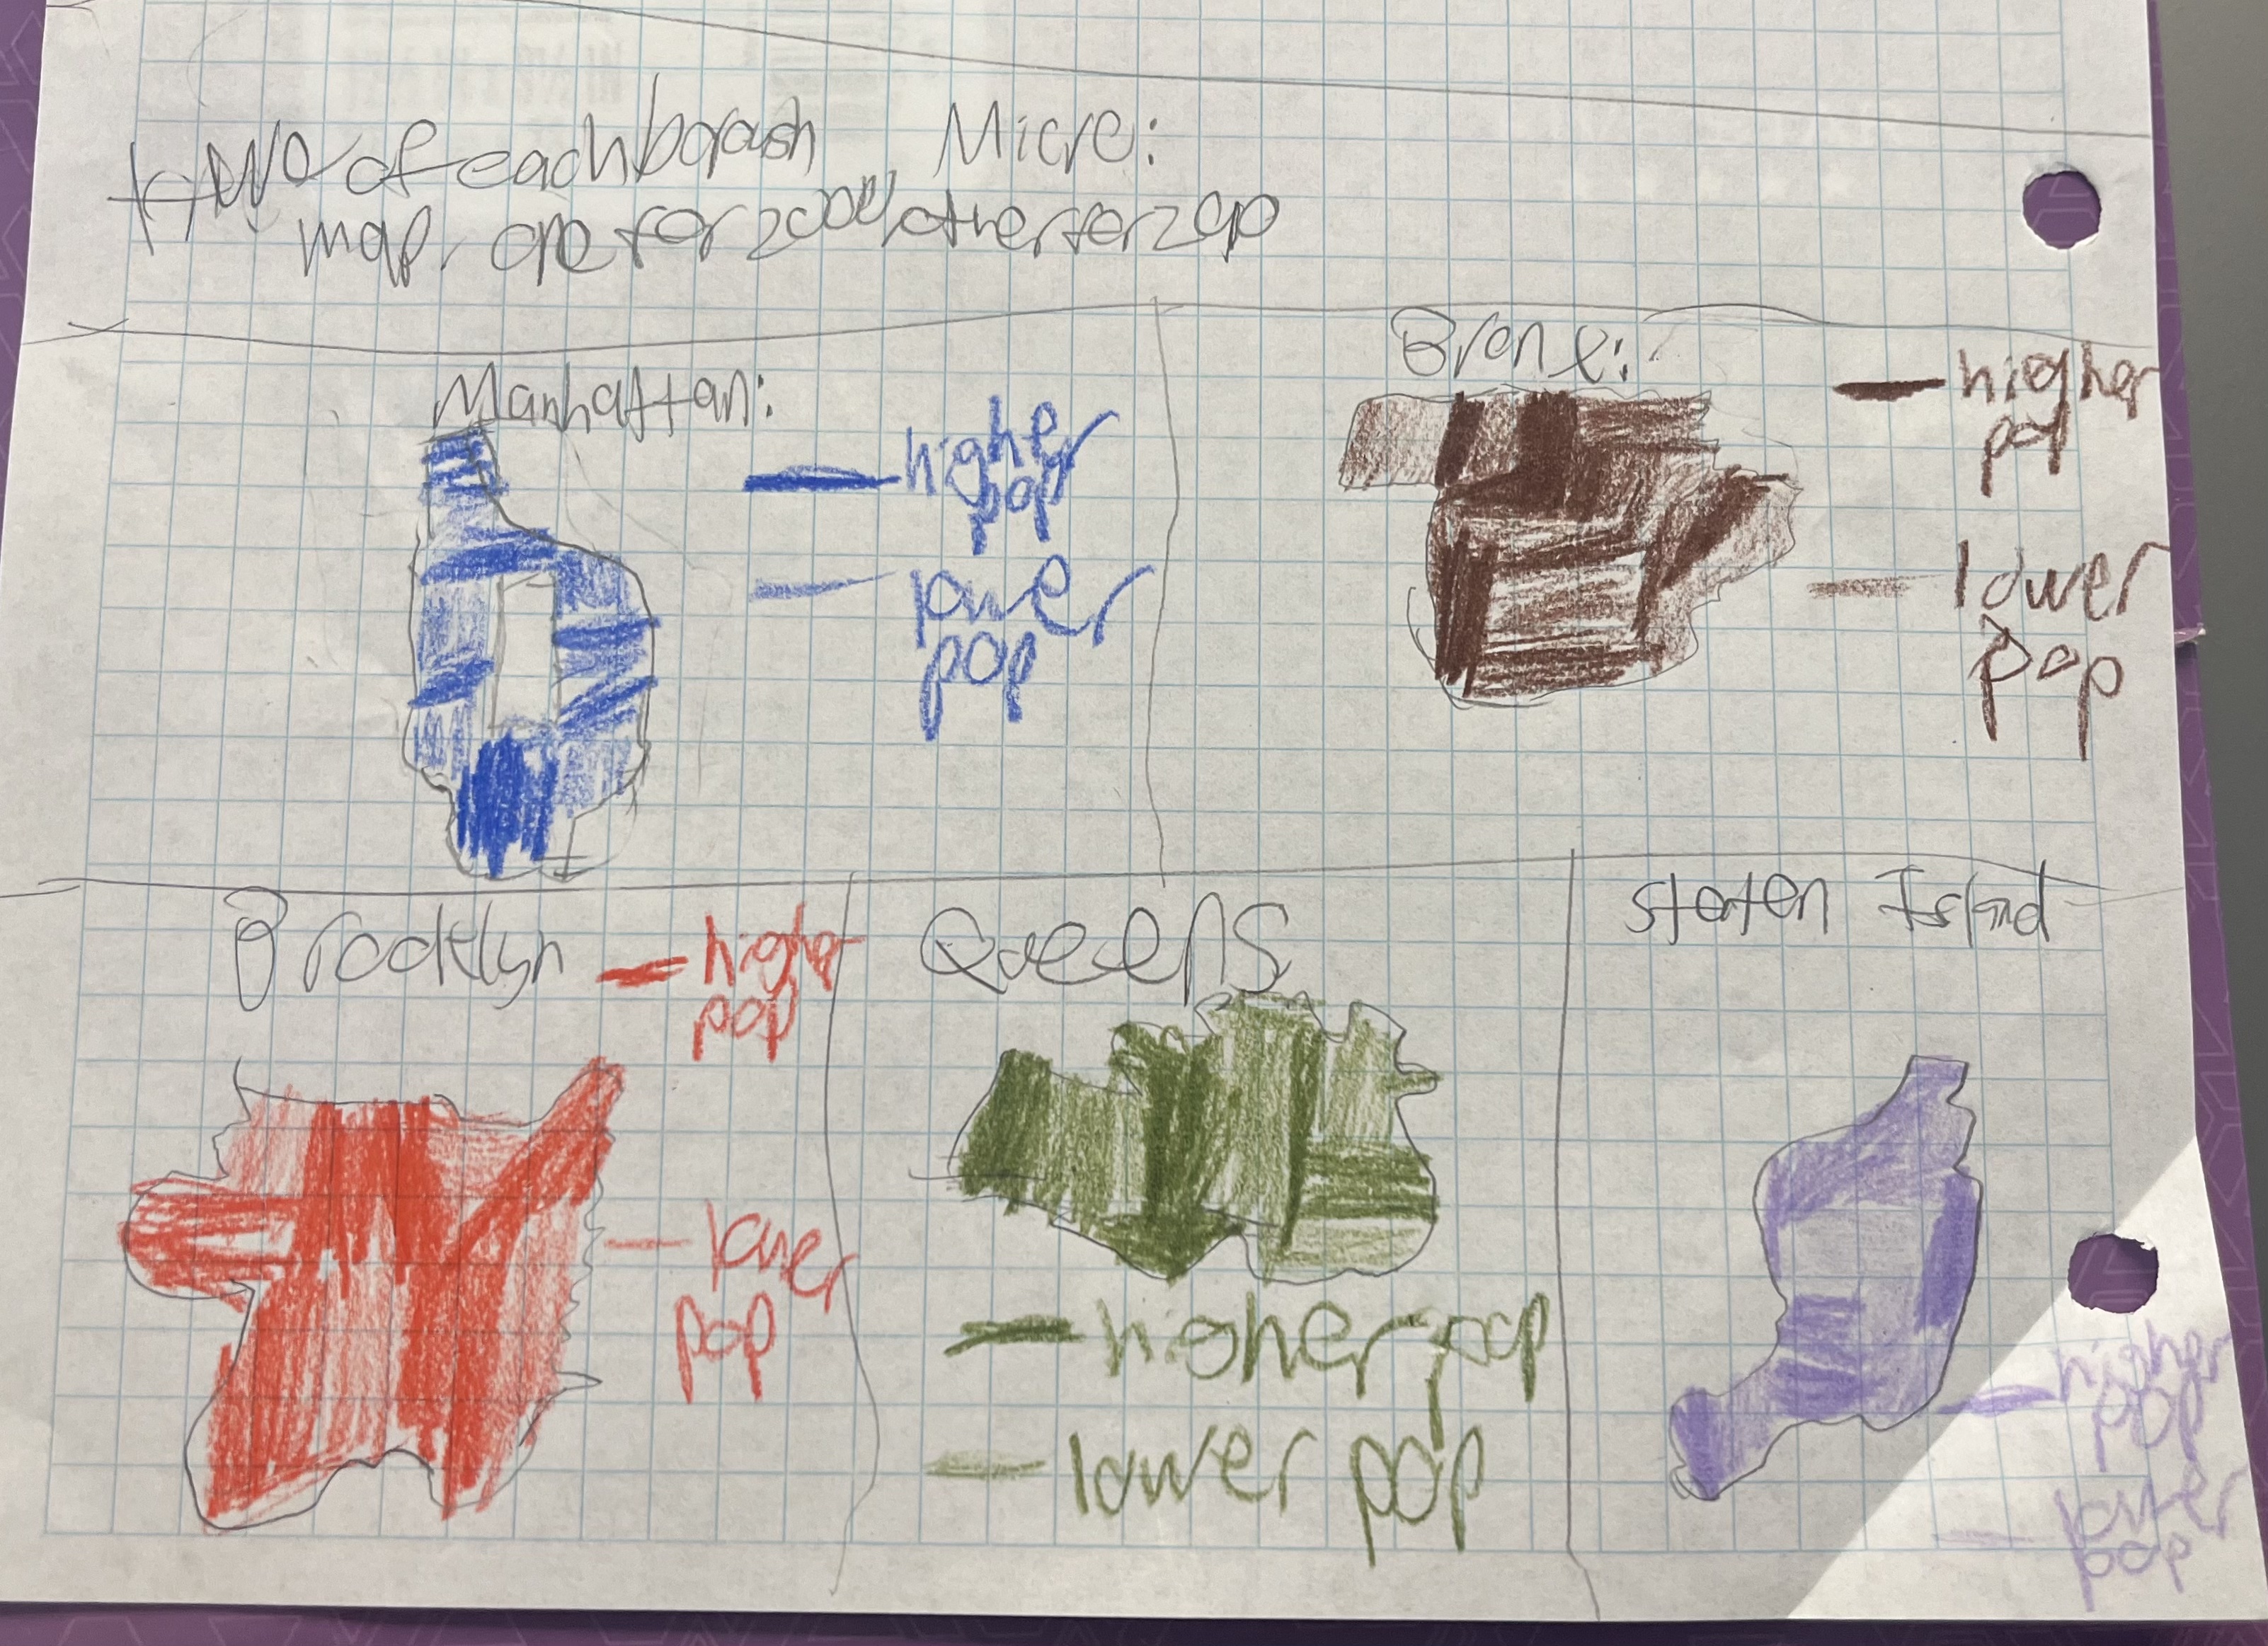 two of each borough Micro:
map, one for 2000, other for 2010
Manhattan:
higher
pop
lower
pop
Bronx:
higher
pop
lower
pop
Brooklyn
higher
pop
lower
pop
Queens
higher pop
lower pop
Staten Island
higher
pop
lower
pop